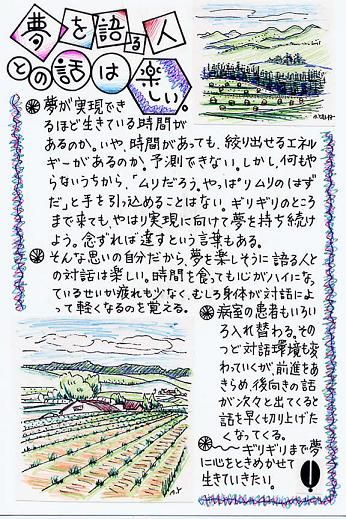 夢を語る人
との話は楽しい。
夢が実現でき
るほど生きている時間が
あるのか。いや、時間があっても、絞り出せるエネル
ギーがあるのか、予測できない。しかし、何もや
らないうちから、「ムリだろう。やっぱりムリのはず
だ」と手を引っ込めることはない。ギリギリのところ
まで来ても、やはり実現に向けて夢を持ち続け
よう。念ずれば達すという言葉もある。
そんな思いの自分だから、夢を楽しそうに語る人と
の対話は楽しい。時間を食っても心がハイになっ
ているせいか疲れも少なく、むしろ身体が対話によ
って軽くなるのを覚える。
病室の患者もいろい
ろ入れ替わる。その
つど対話環境も変
わっていくが、前進をあ
きらめ、後向きの話
が次々と出てくると
話を早く切り上げた
くなってくる。
ギリギリまで夢
に心をときめかせて
生きていきたい。